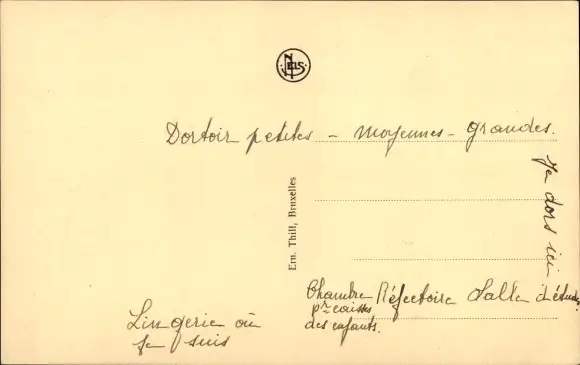 NELS
Dortoir petites - moyennes - grandes.
Je dors ici
Ern. Thill, Bruxelles
Chambre Réfectoire Salle d'étude
pr caisses
des enfants.
Lingerie où
je suis